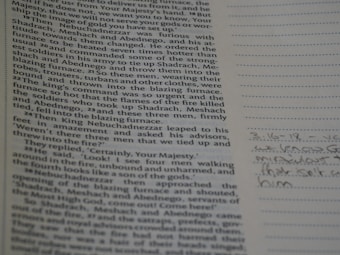 to deliver us from it, and he
if he does from Your Majesty's hand. But
we want you to know, Your
we will not serve your gods or wor-
image of gold you have set up.'
Then Nebuchadnezzar was furious with
Shadrach, Meshach and Abednego, and his at-
titude towards them changed. He ordered the
to be heated seven times hotter than
usual and commanded some of the strong-
est soldiers in his army to tie up Shadrach, Me-
shach and Abednego and throw them into the
blazing furnace. So these men, wearing their
robes, trousers, turbans and other clothes, were
bound and thrown into the blazing furnace.
The king's command was so urgent and the
furnace so hot that the flames of the fire killed
the soldiers who took up Shadrach, Meshach
and Abednego, and these three men, firmly
tied, fell into the blazing furnace.
Then King Nebuchadnezzar leaped to his
feet in amazement and asked his advisors,
'Weren't there three men that we tied up and
threw into the fire?'
They replied, 'Certainly, Your Majesty.'
He said, 'Look! I see four men walking
around in the fire, unbound and unharmed, and
the fourth looks like a son of the gods.'
Nebuchadnezzar then approached the
opening of the blazing furnace and shouted,
'Shadrach, Meshach and Abednego, servants of
the Most High God, come out! Come here!'
So Shadrach, Meshach and Abednego came
out of the fire, and the satraps, prefects, gov-
ernors and royal advisors crowded around them.
They saw that the fire had not harmed their
bodies, nor was a hair of their heads singed;
their robes were not scorched, and there was
we know
him